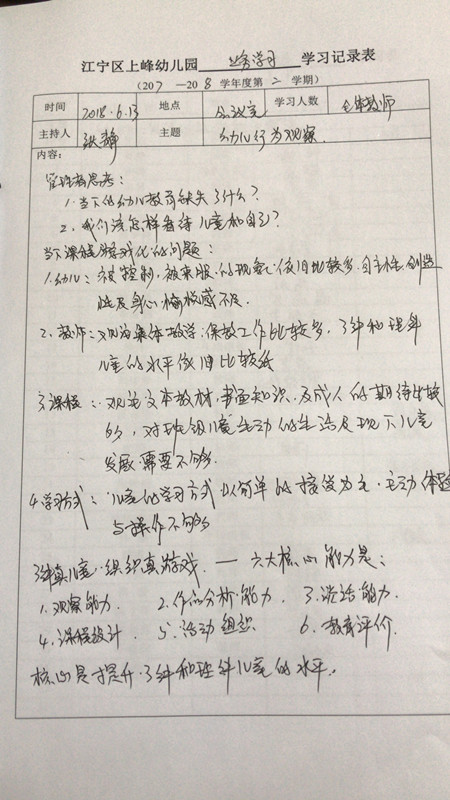 江宁区上峰幼儿园 业务学习 学习记录表
（2017 —2018 学年度第二 学期）
时间 2018.6.13 地点 会议室 学习人数 全体教师
主持人 张静 主题 幼儿行为观察
内容：
管理者思考：
1.当下的幼儿教育缺失了什么？
2、我们该怎样看待儿童和自己？
当下课程游戏化的问题：
1.幼儿：被控制，被束服的现象依旧比较多，自主性、创造
性及身心愉悦感不足.
2、教师：观注集体教学、保教工作比较多，了解和理解
儿童的水平依旧比较低
3.课程：观注文本教材，书面知识，及成人的期待比较
多，对班级儿童生动的生活及现下儿童
发展需要不够多
4.学习方式：儿童的学习方式以简单的接受为主，主动体验
与操作不够多
了解真儿童，组织真游戏. — 六大核心能力是：
1.观察能力. 2.作品分析能力. 3.谈话能力.
4.课程设计. 5.活动组织 6.教育评价.
核心是提升了解和理解儿童的水平.